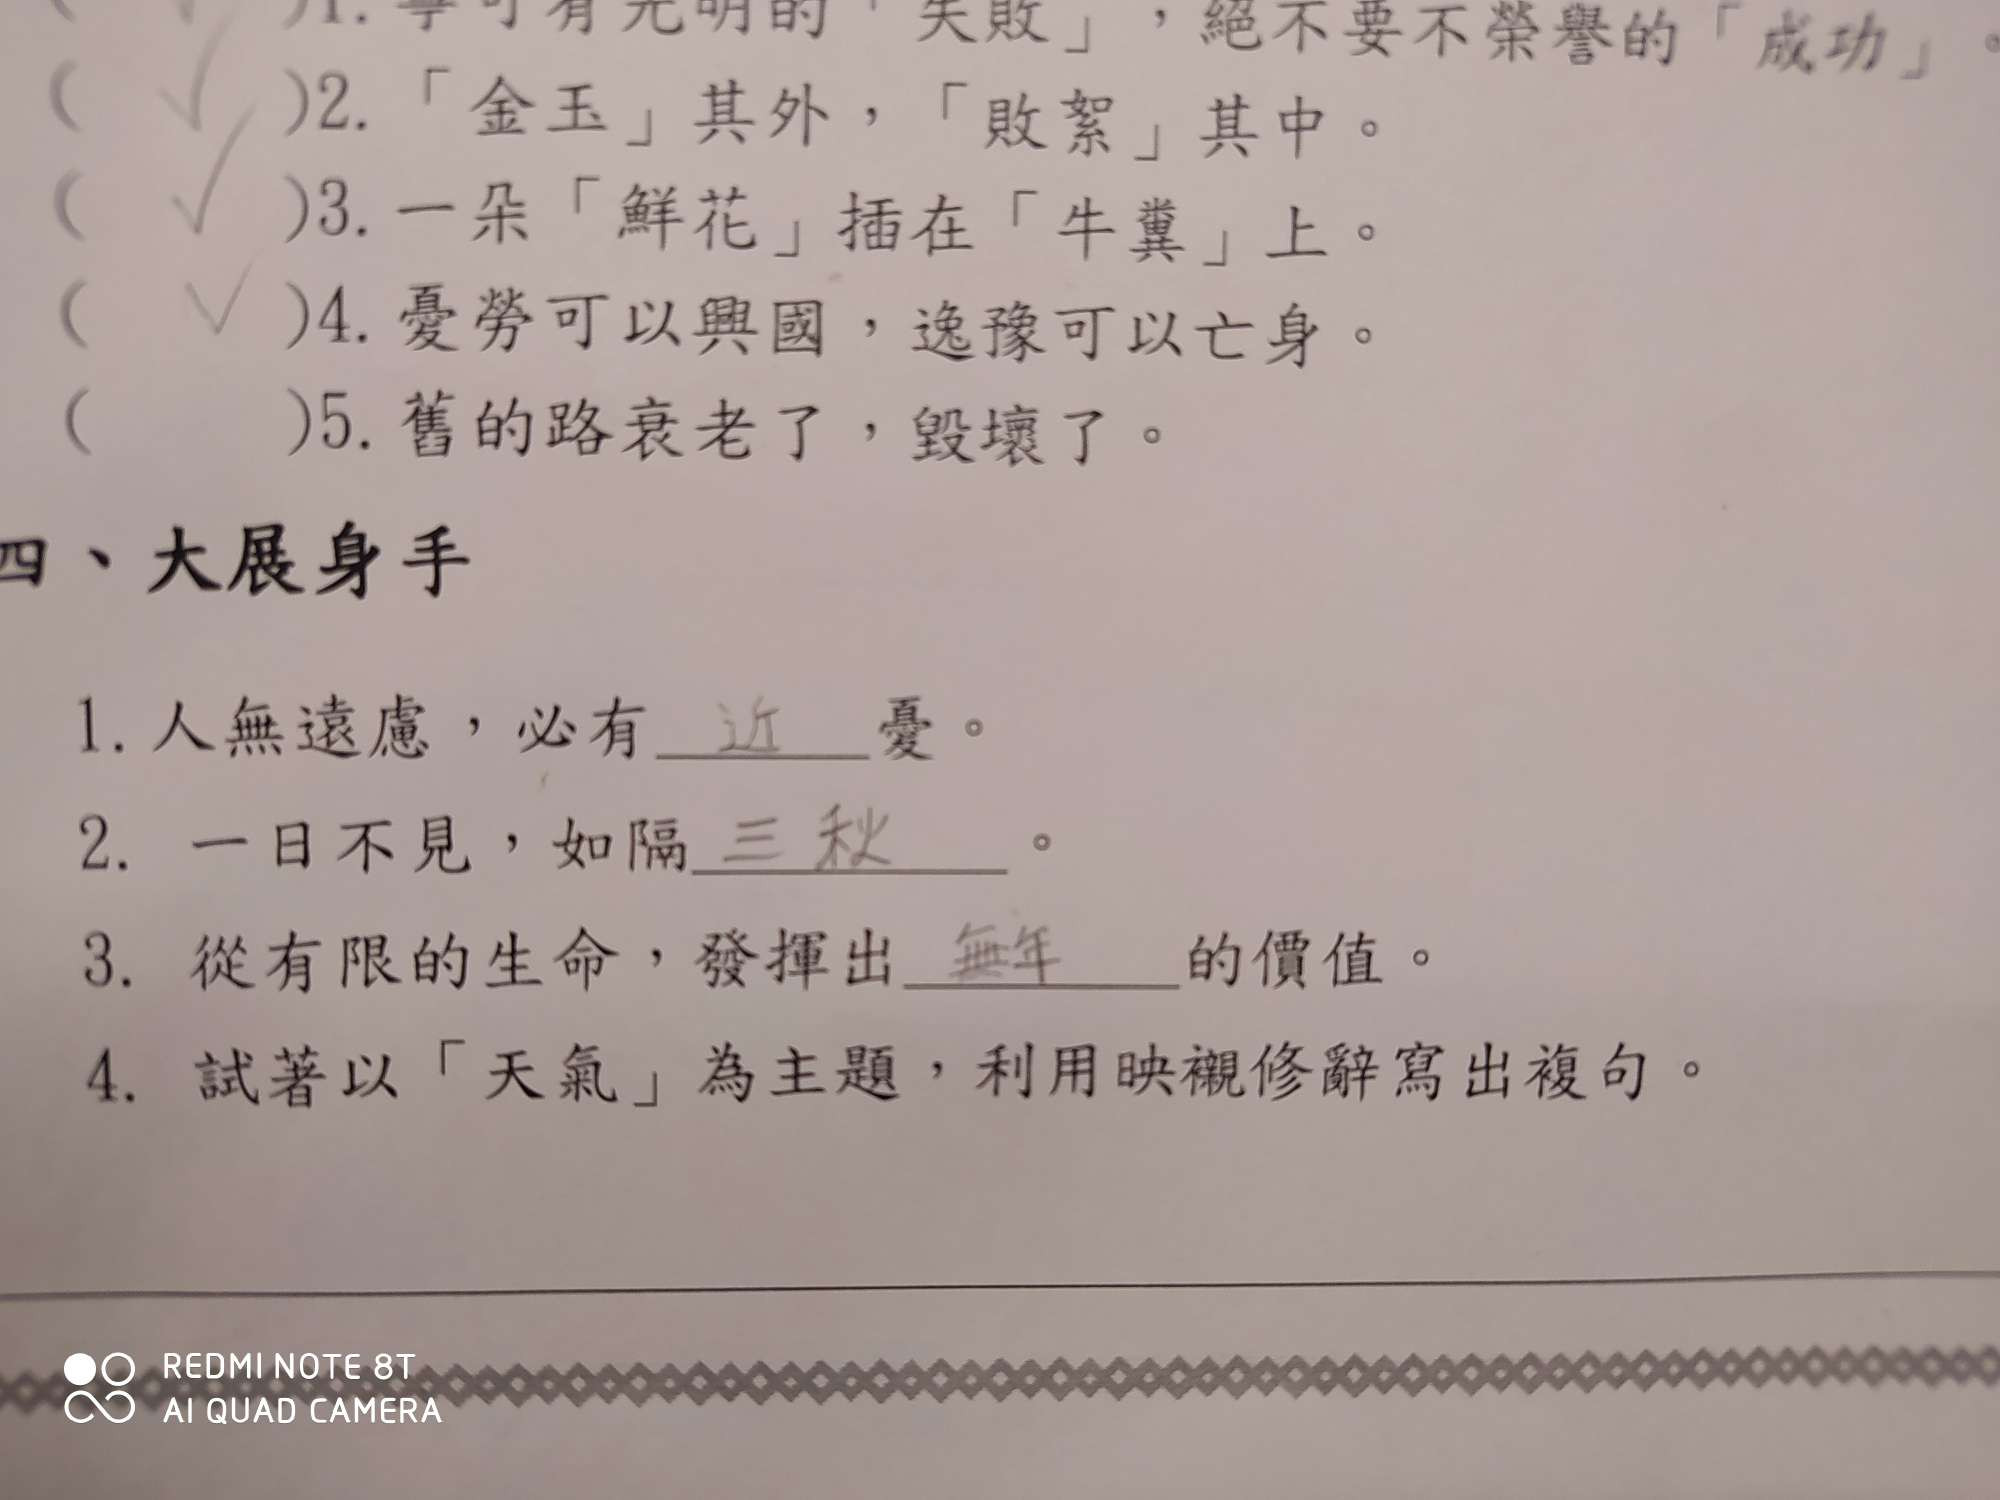 ( ✓ )1. 寧可有光明的「失敗」，絕不要不榮譽的「成功」。
( ✓ )2.「金玉」其外，「敗絮」其中。
( ✓ )3. 一朵「鮮花」插在「牛糞」上。
( ✓ )4. 憂勞可以興國，逸豫可以亡身。
( )5. 舊的路衰老了，毀壞了。
四、大展身手
1. 人無遠慮，必有 近 憂。
2. 一日不見，如隔 三秋 。
3. 從有限的生命，發揮出 無年 的價值。
4. 試著以「天氣」為主題，利用映襯修辭寫出複句。
REDMI NOTE 8T
AI QUAD CAMERA